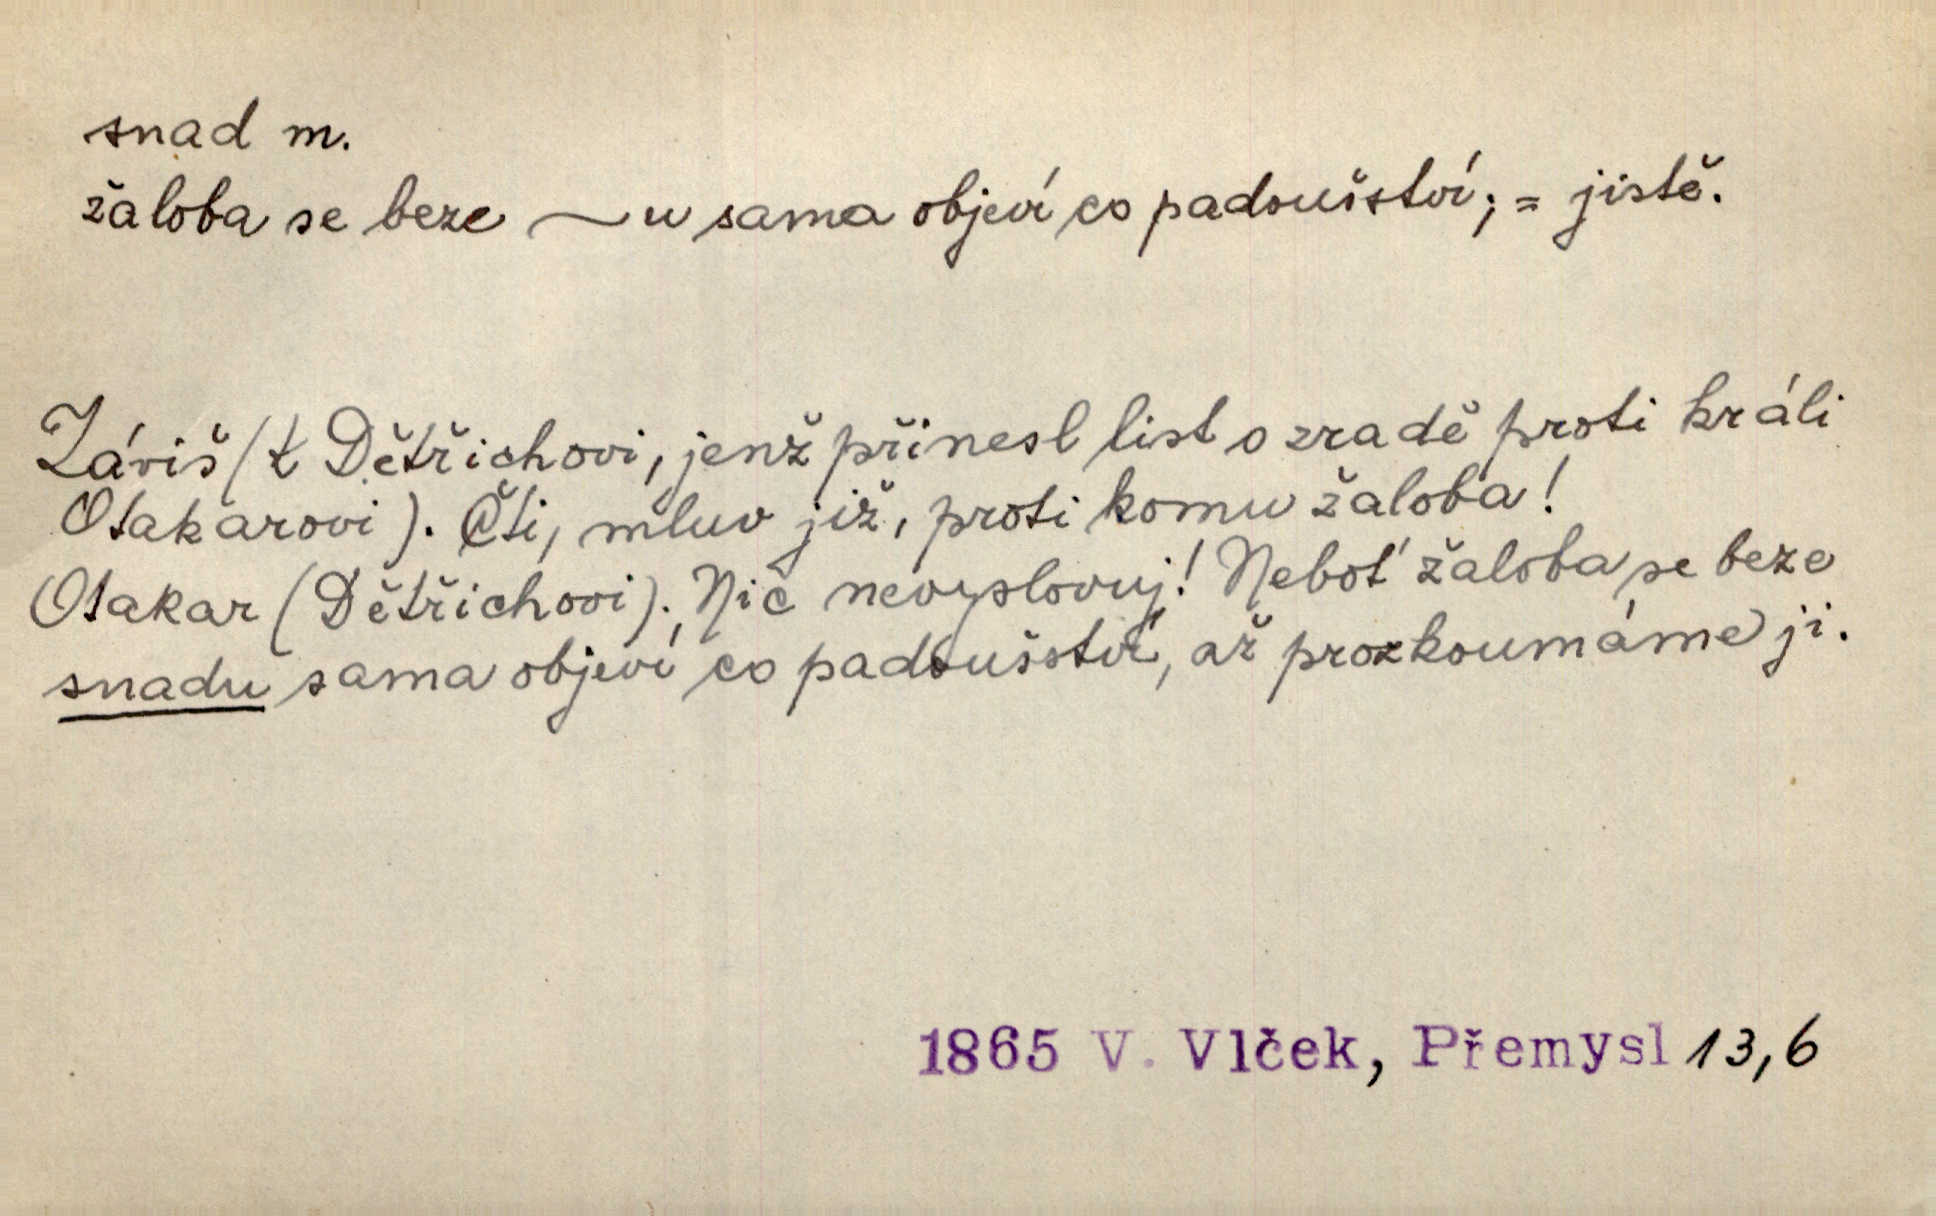 snad m.
žaloba se beze ~u sama objeví co padoušství; = jistě.
Záviš (k Dětřichovi, jenž přinesl list o zradě proti králi
Otakarovi). Čti, mluv již, proti komu žaloba!
Otakar (Dětřichovi). Nic nevyslovuj! Neboť žaloba se beze
snadu sama objeví co padoušství, až prozkoumáme ji.
1865 V. Vlček, Přemysl 13,6